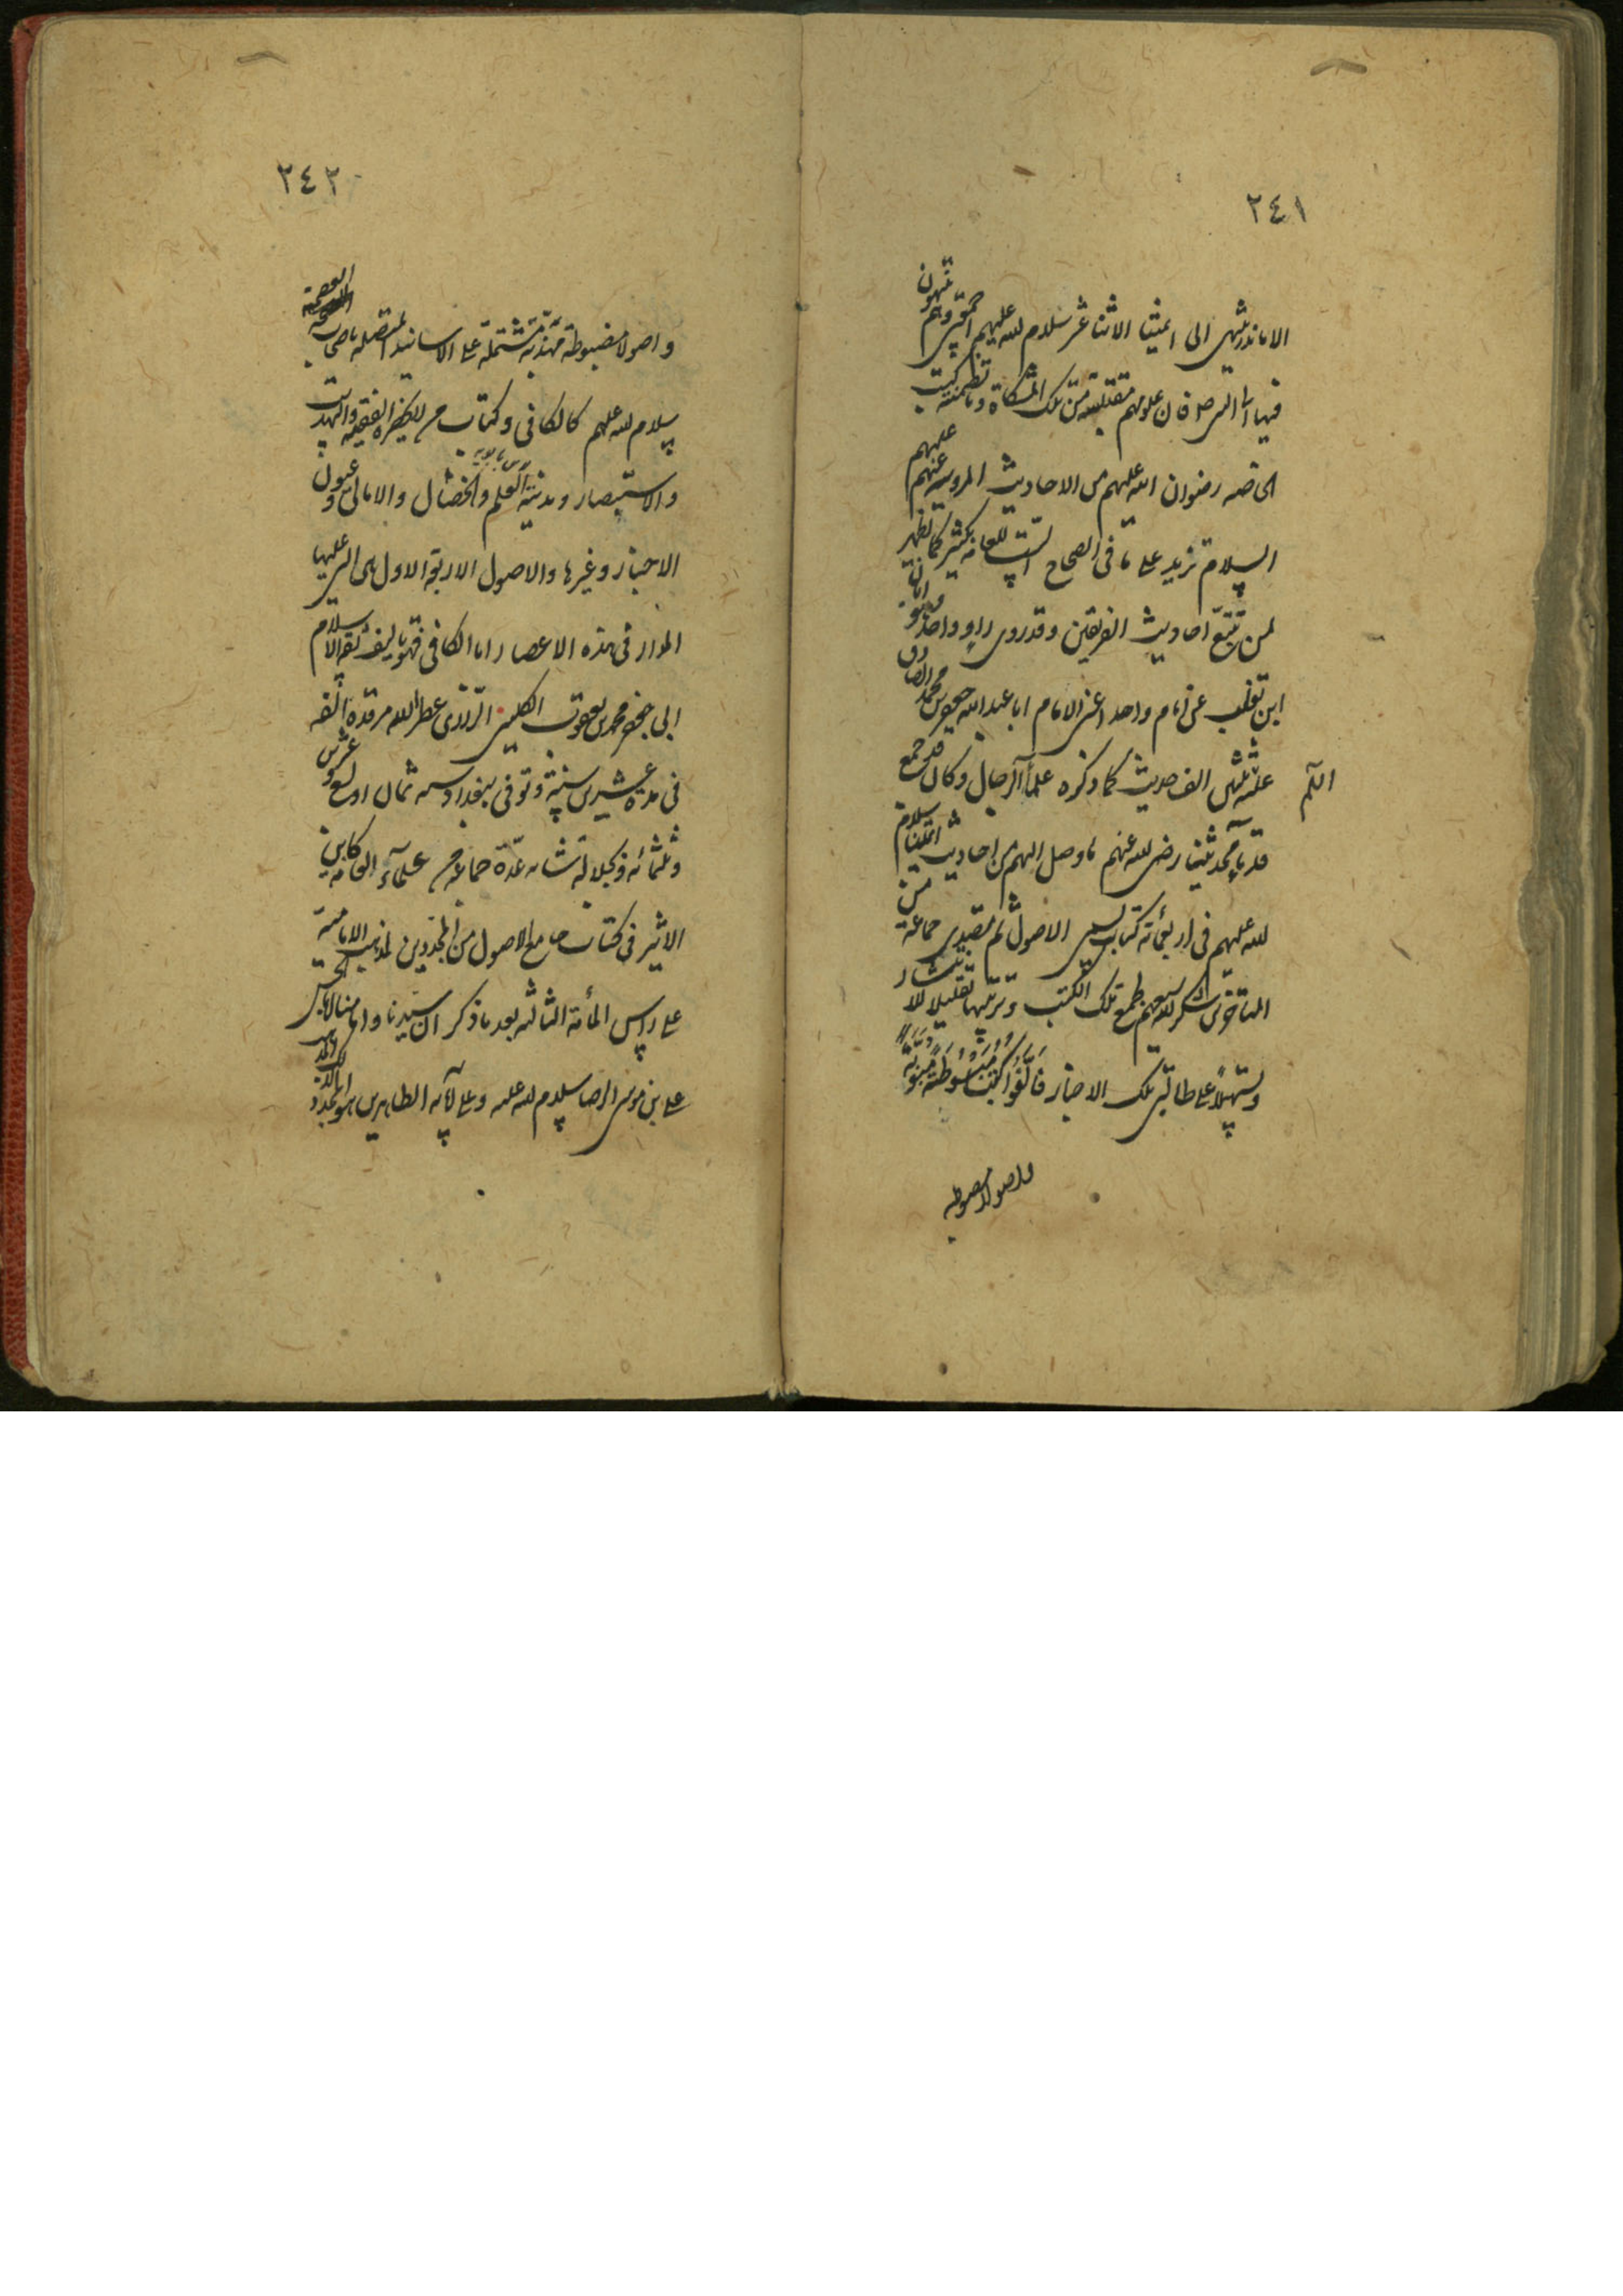 ٢٤١
الا ما ندر ينتهى الى ائمتنا الاثنا عشر سلام الله عليهم اجمعين وهم ينتهون
فيها الى النبى ص فان علومهم مقتبسة من تلك المشكاة وما تضمنته كتب
الخاصه رضوان الله عليهم من الاحاديث المرويه عنهم عليهم
السلام تزيد على ما فى الصحاح الست للعامه بكثير كما يظهر
لمن تتبع احاديث الفريقين وقد روى راو واحد وهو ابان
ابن تغلب عن امام واحد اعنى الامام ابا عبد الله جعفر بن محمد الصادق
عليه ثلثين الف حديث كما ذكره علمأ الرجال وكان قد جمع
قدمآء محدثينا رضى الله عنهم ما وصل اليهم من احاديث ائمتنا سلام
الله عليهم فى اربعمائة كتاب يسمى الاصول ثم تصدى جماعة من
المتاخرين شكر الله سعيهم لجمع تلك الكتب وترتيبها تقليلا للانتشار
وتسهيلا على طالبى تلك الاخبار فالفوا كتبا مبسوطة مبوبة
واصولا مضبوطه
٢٤٢
واصولا مضبوطة مهذبة مشتملة على الاسانيد المتصله باصحاب العصمة
سلام الله عليهم كالكافى وكتاب من لا يحضره الفقيه والتهذيب
والاستبصار ومدينة العلم والخصال والامالى وعيون
الاخبار وغيرها والاصول الاربعة الاول هى التى عليها
المدار فى هذه الاعصار اما الكافى فهو تاليف ثقة الاسلام
ابى جعفر محمد بن يعقوب الكلينى الرازى عطر الله مرقده الفه
فى مدة عشرين سنة وتوفى ببغداد سنه ثمان او تسع وعشرين
وثلثمائه ولجلالة شانه عدّه جماعه من علمآء العامه كابن
الاثير فى كتاب جامع الاصول من المجددين لمذهب الاماميه
على راس المأة الثالثه بعد ما ذكر ان سيدنا وامامنا ابا الحسن
على بن موسى الرضا سلام الله عليه وعلى آبائه الطاهرين هو المجدد